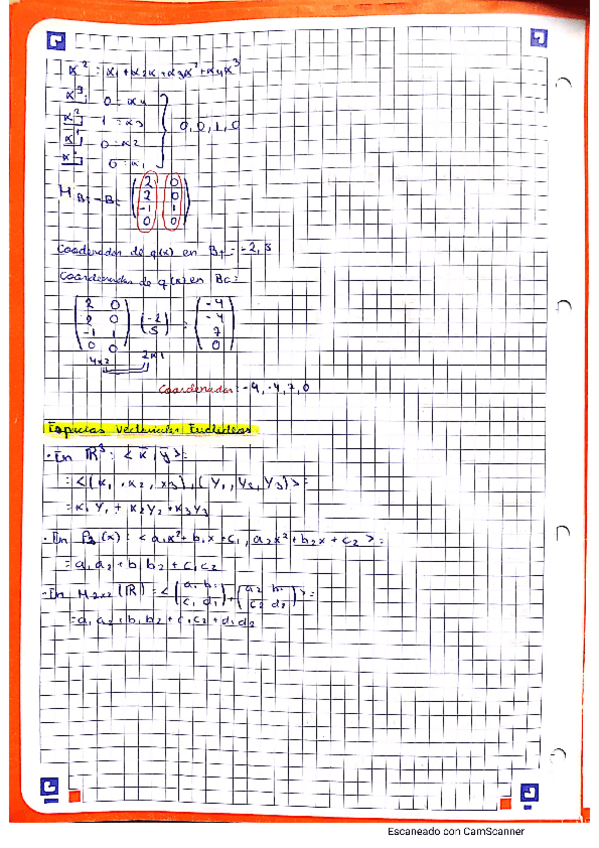 x² = α₁ + α₂x + α₃x² + α₄x³
x³: 0 = α₄
x²: 1 = α₃
x¹: 0 = α₂
0 = α₁
0, 0, 1, 0
2 0
2 0
-1 1
0 0
Coordenadas de q(x) en = -2, 5
Coordenadas de q(x) en Bc =
(2 0) (-4)
(2 0) (-2) = (-4)
(-1 1) (5) (7)
(0 0) (0)
4x2 2x1
Coordenadas: -4, -4, 7, 0
Espacios vectoriales Euclídeos
· En ℝ³: <x, y> =
= <(x₁, x₂, x₃), (y₁, y₂, y₃)> =
= x₁y₁ + x₂y₂ + x₃y₃
· En P₂(x): <a₁x² + b₁x + c₁, a₂x² + b₂x + c₂> =
= a₁a₂ + b₁b₂ + c₁c₂
· En M₂ₓ₂(ℝ) = <(a₁ b₁ / c₁ d₁), (a₂ b₂ / c₂ d₂)> =
= a₁a₂ + b₁b₂ + c₁c₂ + d₁d₂
Escaneado con CamScanner